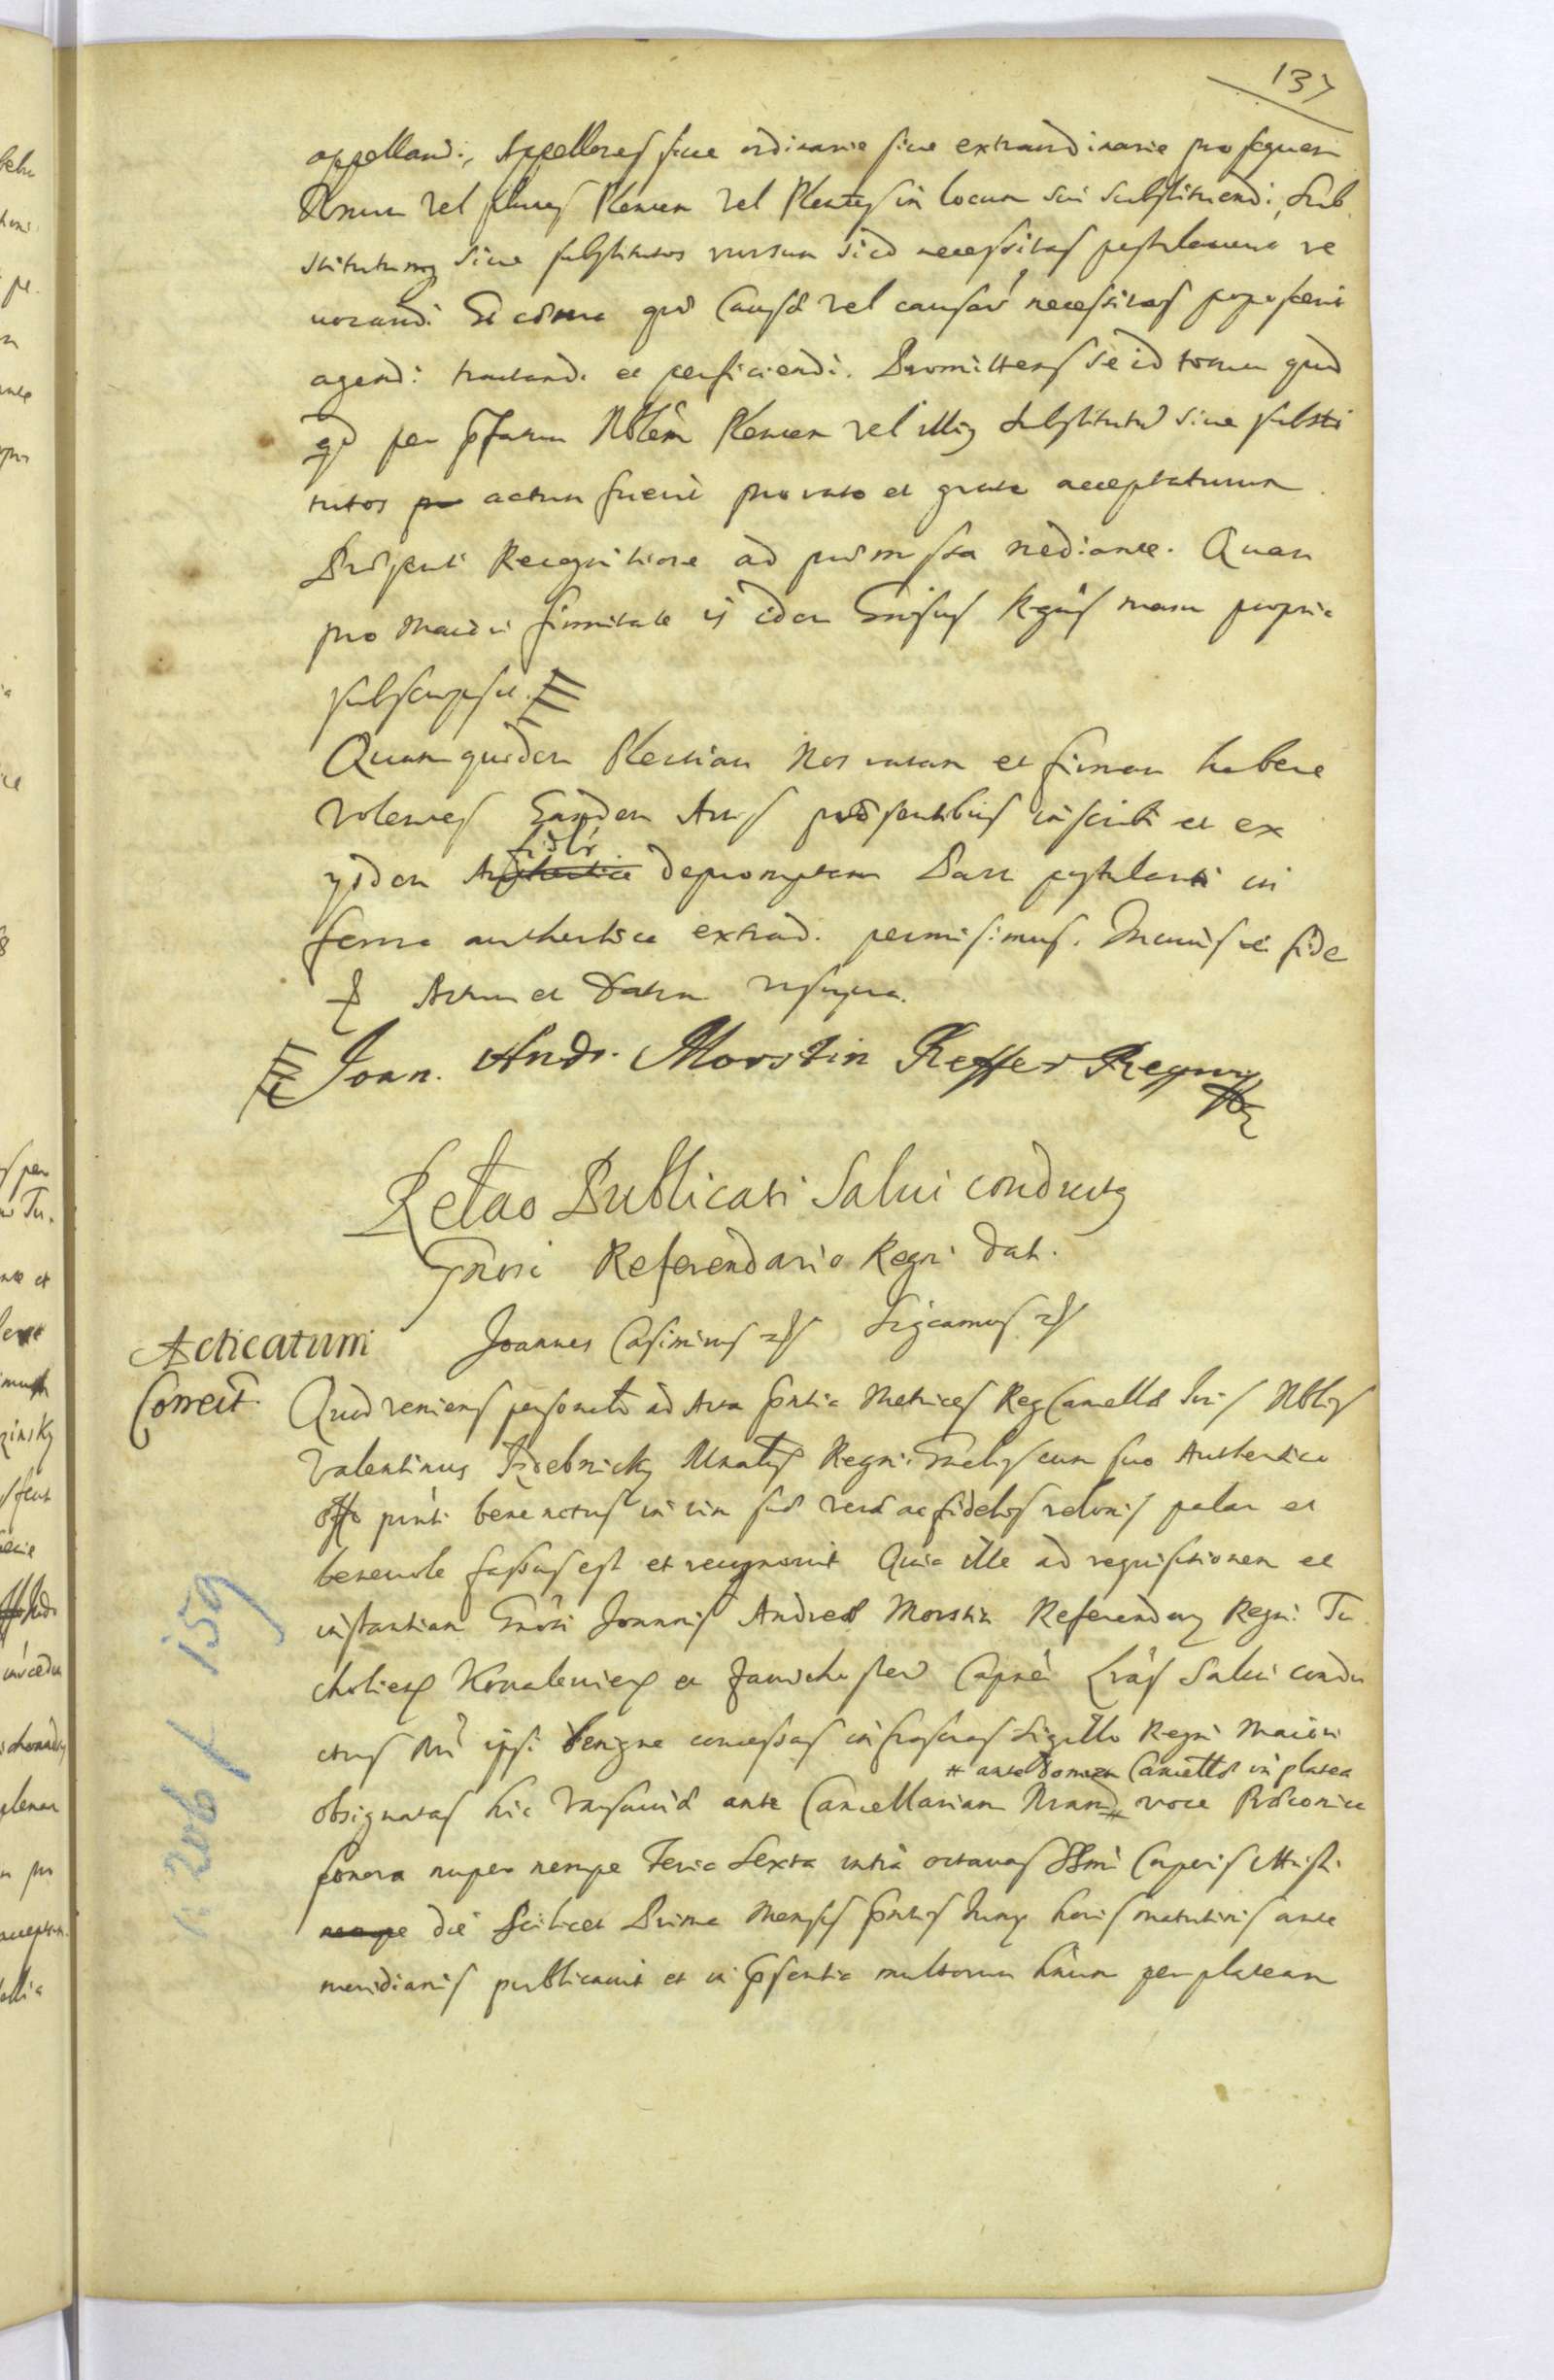 137
appellandi, Appellones siue ordinarie siue extraordinarie prosequen
Vnum vel plures Plenten vel Plentes in locum sui substituendi, Sub
stitutumq siue substitutos rursum si id necessitas postulauerit re
uocandi Et omne qud Causæ vel causar necessitas poposcerit
agendi tractandi et perficiendi. Promittens se id totum quid
qd per pfatum Nblem Plenten vel illig Substitutū siue substi
tutos actum fuerit pro rato et grato accepturum
Præsenti Recognitione ad præmissa mediante. Quam
pro maiori firmitate is idem Gnsus Rgns manu propria
subscripsit.
Quam quidem Plentiam Nos ratam et firmam habere
volentes Eandem Actis præsentibus inscribi et ex
ysdem fidlr depromptam Parti postulanti in
forma authentica extrad. permisimus. In cuius rei fide
Actum et Datum vt supra.
Joan. Andr. Morstin Reffer Regni
Relao Publicati Salui conductg
Gnosi Referendario Regni dati.
Acticatum
Joannes Casimirus Sigcamus
Correct.
Quod veniens personalr ad Acta pntia Metrices Reg Cancellæ Suis Nblis
Valentinus Mnatis Regni Gnelis cum suo Authentico
offo pnti bene notus in vim suæ veræ ac fidelis relonis palam et
beneuole fassus est et recognouit Quia ille ad requisitionem et
instantiam Gnosi Joannis Andreæ Morstin Referendarij Regni Tu
choliem Kowaleuien et Capnei Lras Salui condu
ctus Nri ipsi benigne concessas infrascras Sigillo Regni maiori
# ante Domum Cancellæ in platea
obsignatas hic Varsauiæ ante Cancellariam Nram # voce Præconica
sonora nuper nempe Feria Sexta intra octauas SSmi Corporis Christi
die Scilicet Prima Mensis pntis Juny horis matutinis ante
meridianis publicauit et in psentia multorum hnum per plateam
p. 206 f 159